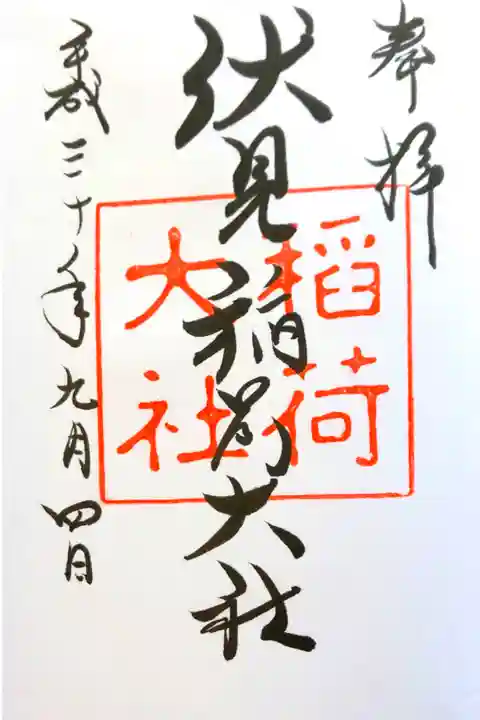 奉拝
伏見稲荷大社
稲荷
大社
平成三十年九月四日